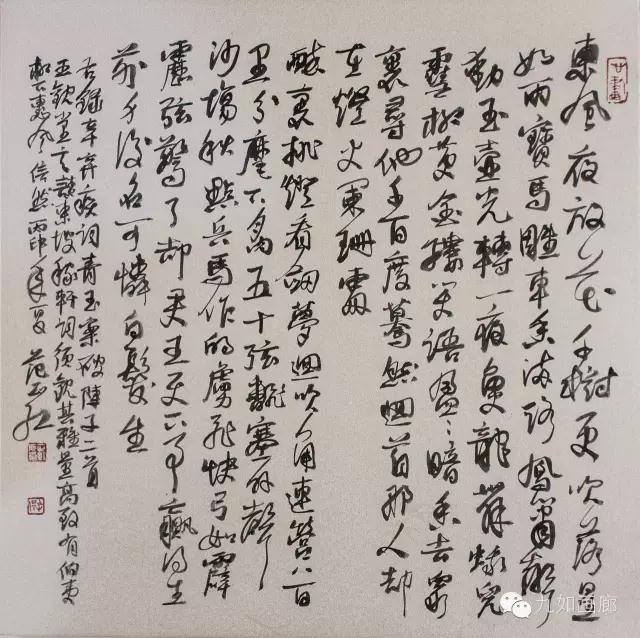 東風夜放花千樹更吹落星
如雨寶馬雕車香滿路鳳簫聲
動玉壺光轉一夜魚龍舞蛾兒
雪柳黃金縷笑語盈〻暗香去衆
裏尋他千百度驀然迴首那人却
在燈火闌珊處
醉裏挑燈看劔夢迴吹角連營八百
里分麾下炙五十弦翻塞外聲
沙場秋點兵馬作的盧飛快弓如霹
靂弦驚了却君王天下事贏得生
前身後名可憐白髮生
右錄辛棄疾詞青玉案破陣子二首
王言讀東坡稼軒詞須觀其雅量高致有伯夷
柳下惠風信然丙申年夏范
九如画廊